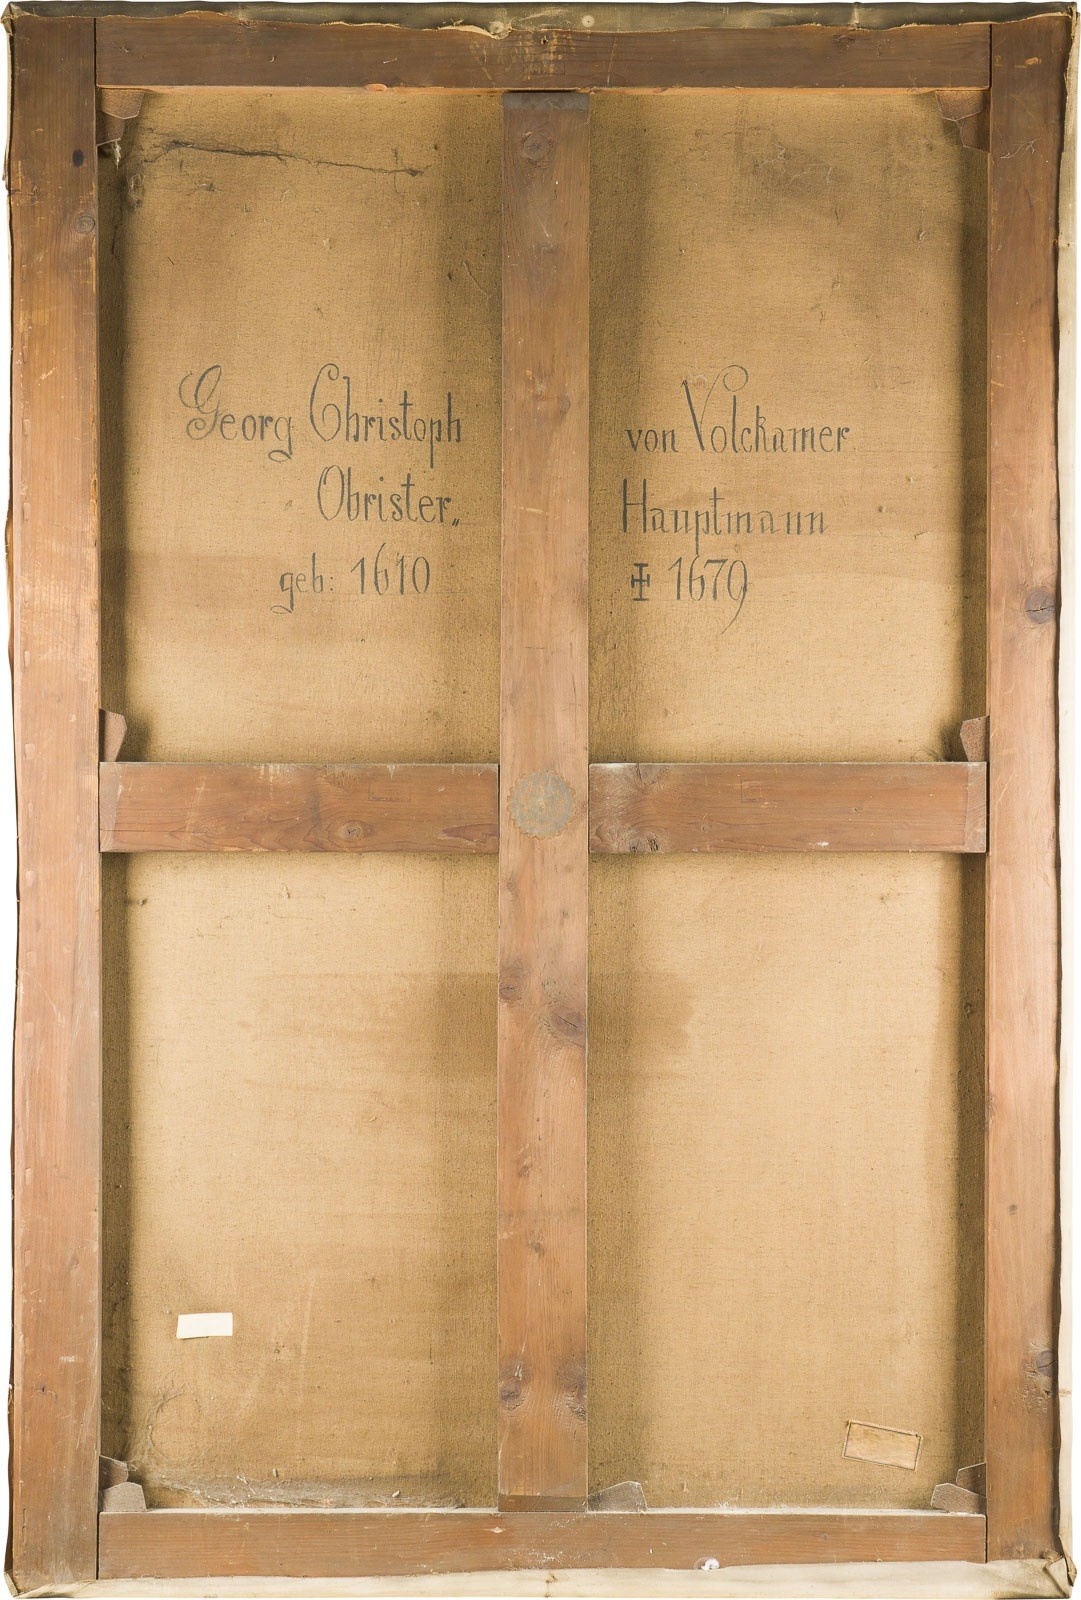 Georg Christoph von Volckamer
Obrister„ Hauptmann
geb: 1610 ✠ 1679